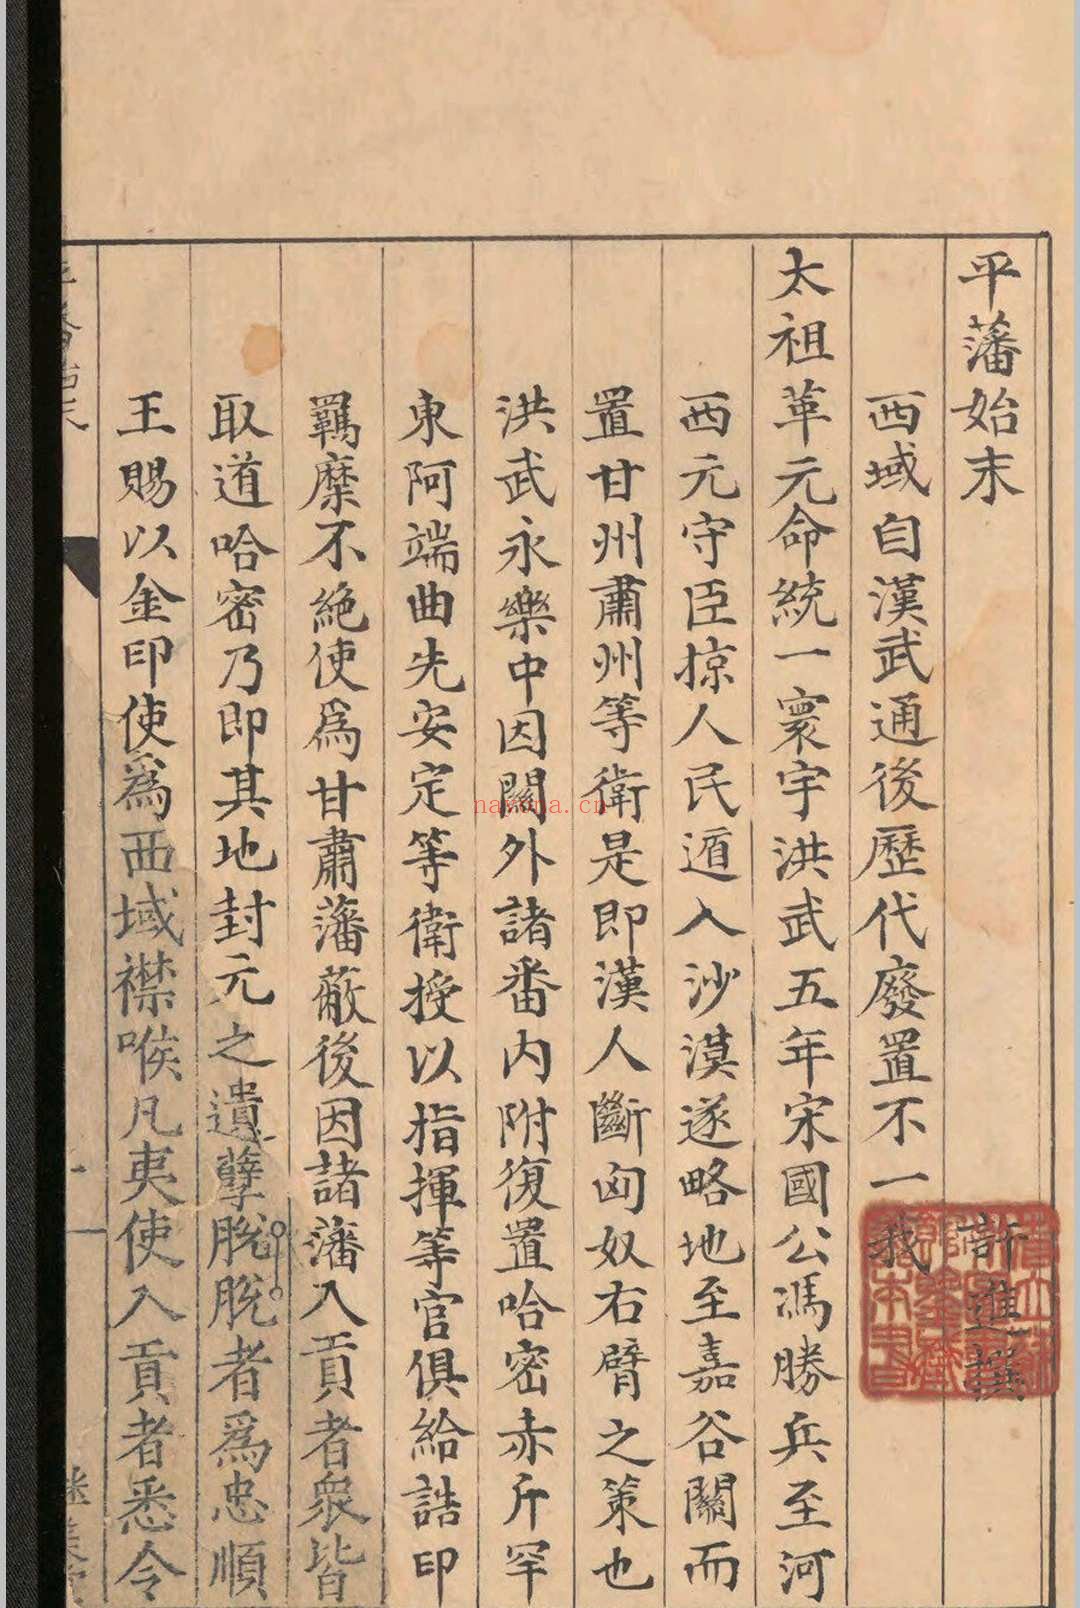 平藩始末
許進撰
西域自漢武通後歷代廢置不一我
太祖革元命統一寰宇洪武五年宋國公馮勝兵至河
西元守臣掠人民遁入沙漠遂略地至嘉谷關而
置甘州肅州等衛是即漢人斷匈奴右臂之策也
洪武永樂中因關外諸番內附復置哈密赤斤罕
東阿端曲先安定等衛授以指揮等官俱給誥印
羈縻不絶使爲甘肅藩蔽後因諸藩入貢者衆皆
取道哈密乃即其地封元之遺孽脫脫者爲忠順
王賜以金印使爲西域襟喉凡夷使入貢者悉令